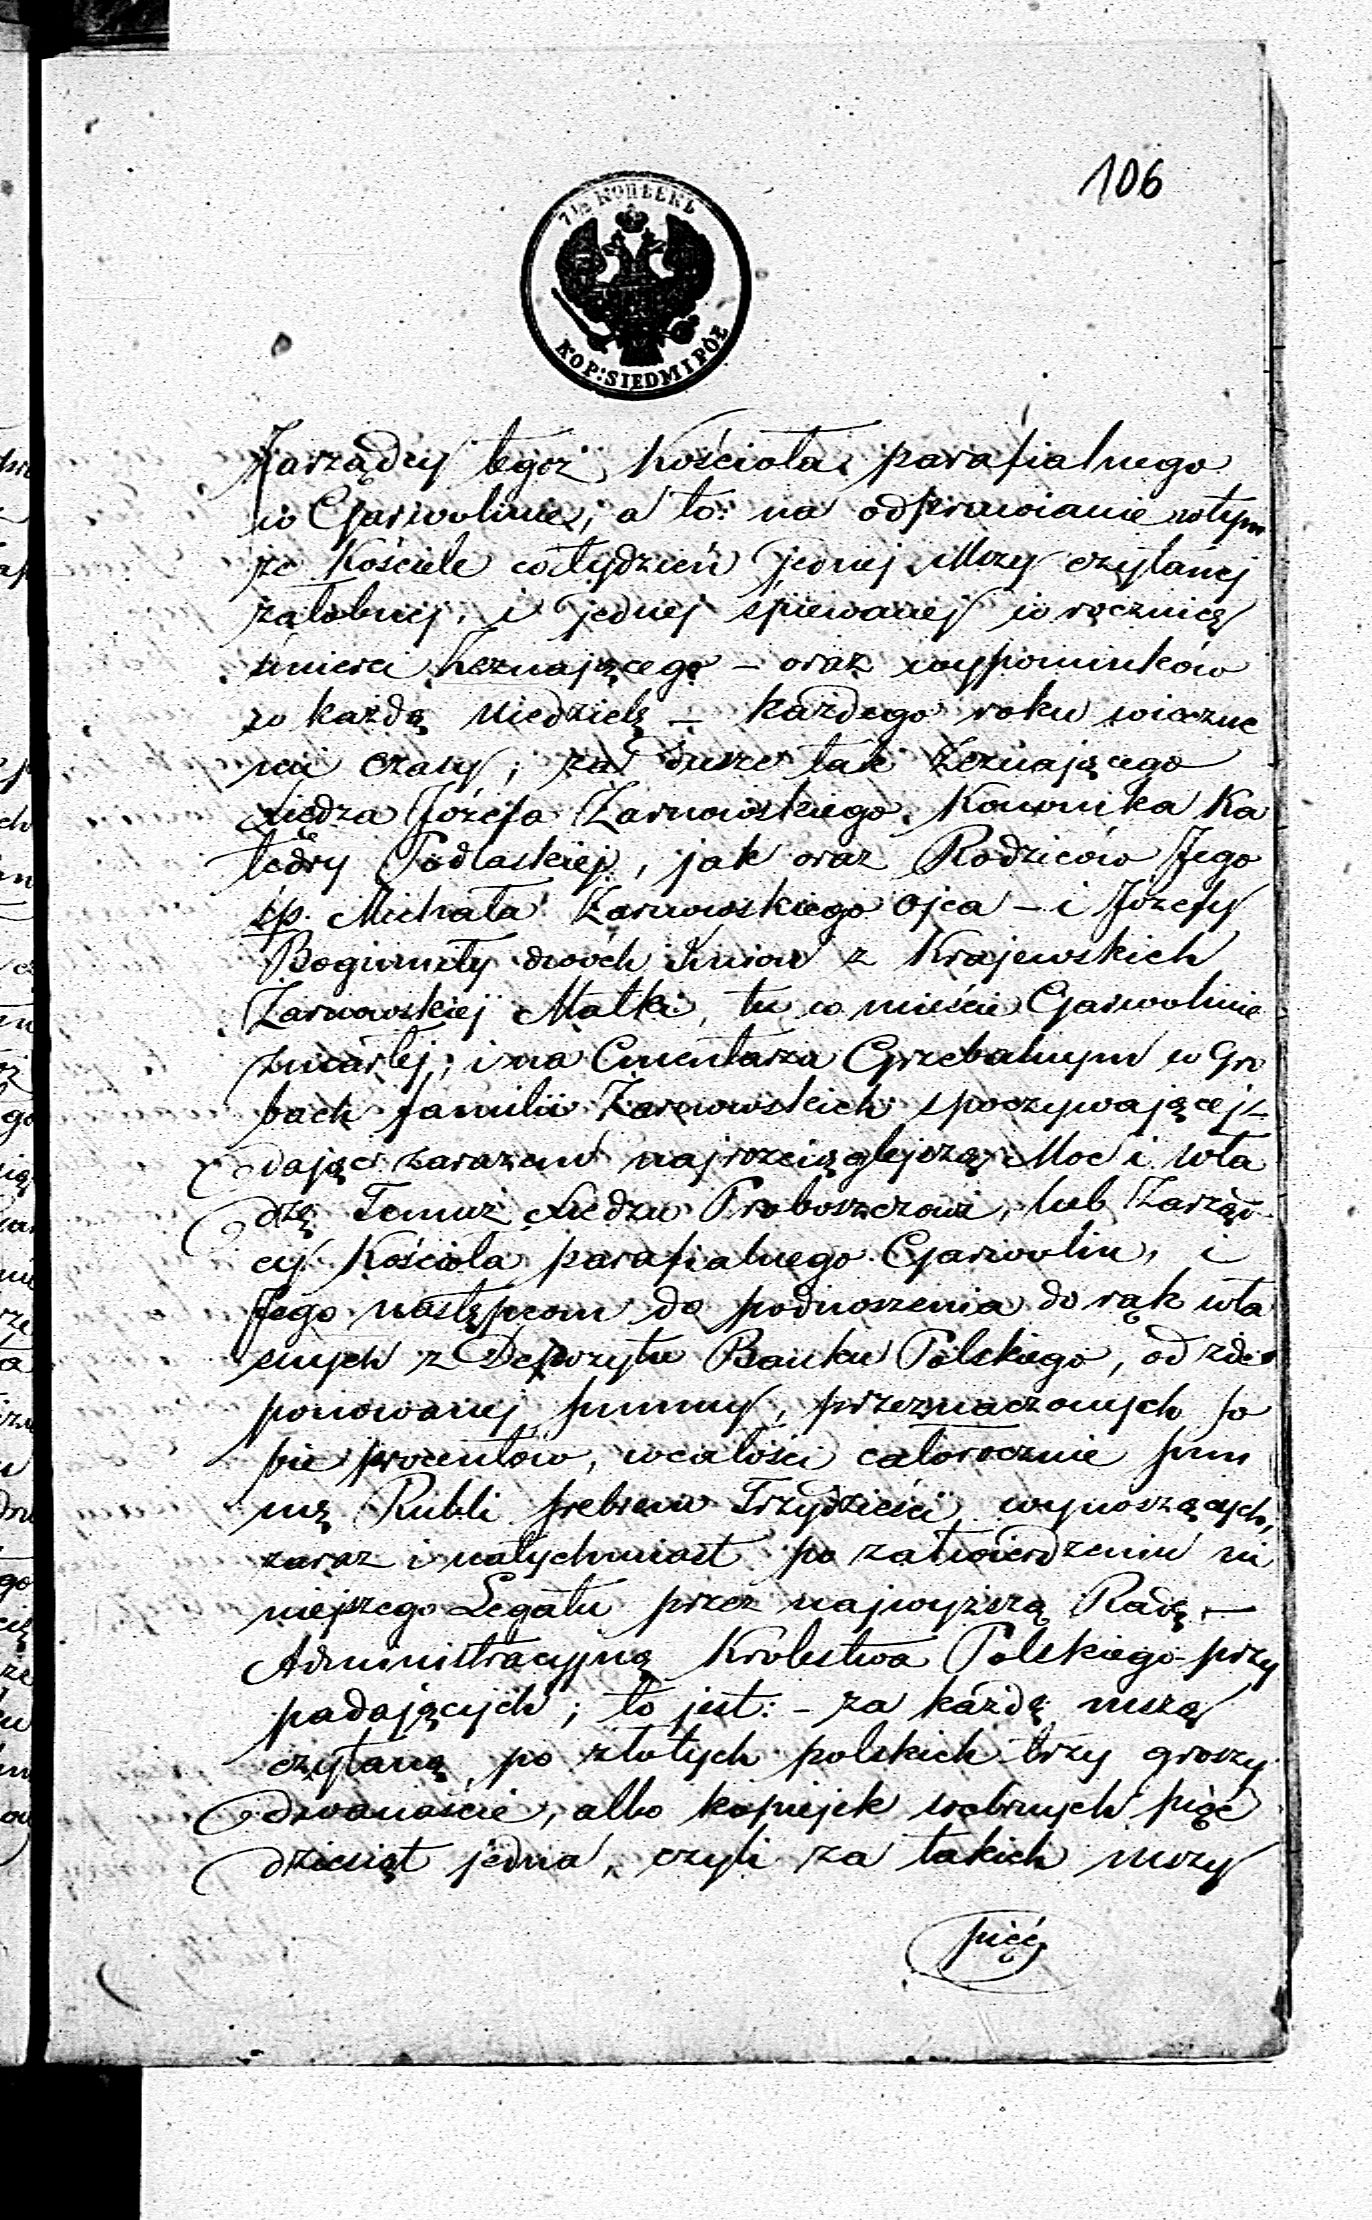 106
7 1/2 КОПѢЕКЪ
KOP: SIEDM I PÓŁ
Zarządcy tegoż Kościoła parafialnego
w Garwolinie; a to: na odprawianie w tym
że Kościele co tydzień jednej Mszy czytanej
żałobnej, i jednej śpiewanej w rocznicę
śmierci Zeznającego – oraz wypominków
w każdą Niedzielę – każdego roku wieczne
mi czasy; za dusze tak Zeznającego
Xiędza Józefa Żarnowskiego Kanonika Ka
tedry Podlaskiej, jak oraz Rodziców Jego
śp. Michała Żarnowskiego Ojca – i Józefy
Bogumiły dwóch Imion z Krajewskich
Żarnowskiej Matki, tu w mieście Garwolinie
zmarłej; i na Cmentarzu Grzebalnym w Gro
bach familii Żarnowskich spoczywającej –
dając zarazem najrozciąglejszą Moc i wła
dzę Temuż Xiędzu Proboszczowi, lub Zarząd
cy Kościoła parafialnego Garwolin, i
Jego następcom do podnoszenia do rąk wła
snych z Depozytu Banku Polskiego, od zde
ponowanej summy, przeznaczonych so
bie procentów, w całości całorocznie sum
mę Rubli srebrem Trzydzieści wynoszących,
zaraz i natychmiast po zatwierdzeniu ni
niejszego Legatu przez najwyższą Radę –
Administracyjną Królestwa Polskiego przy
padających; to jest: – za każdą mszą
czytaną po złotych polskich trzy groszy
dwanaście, albo kopiejek srebrnych pięć
dziesiąt jedna, czyli za takich mszy
pięć